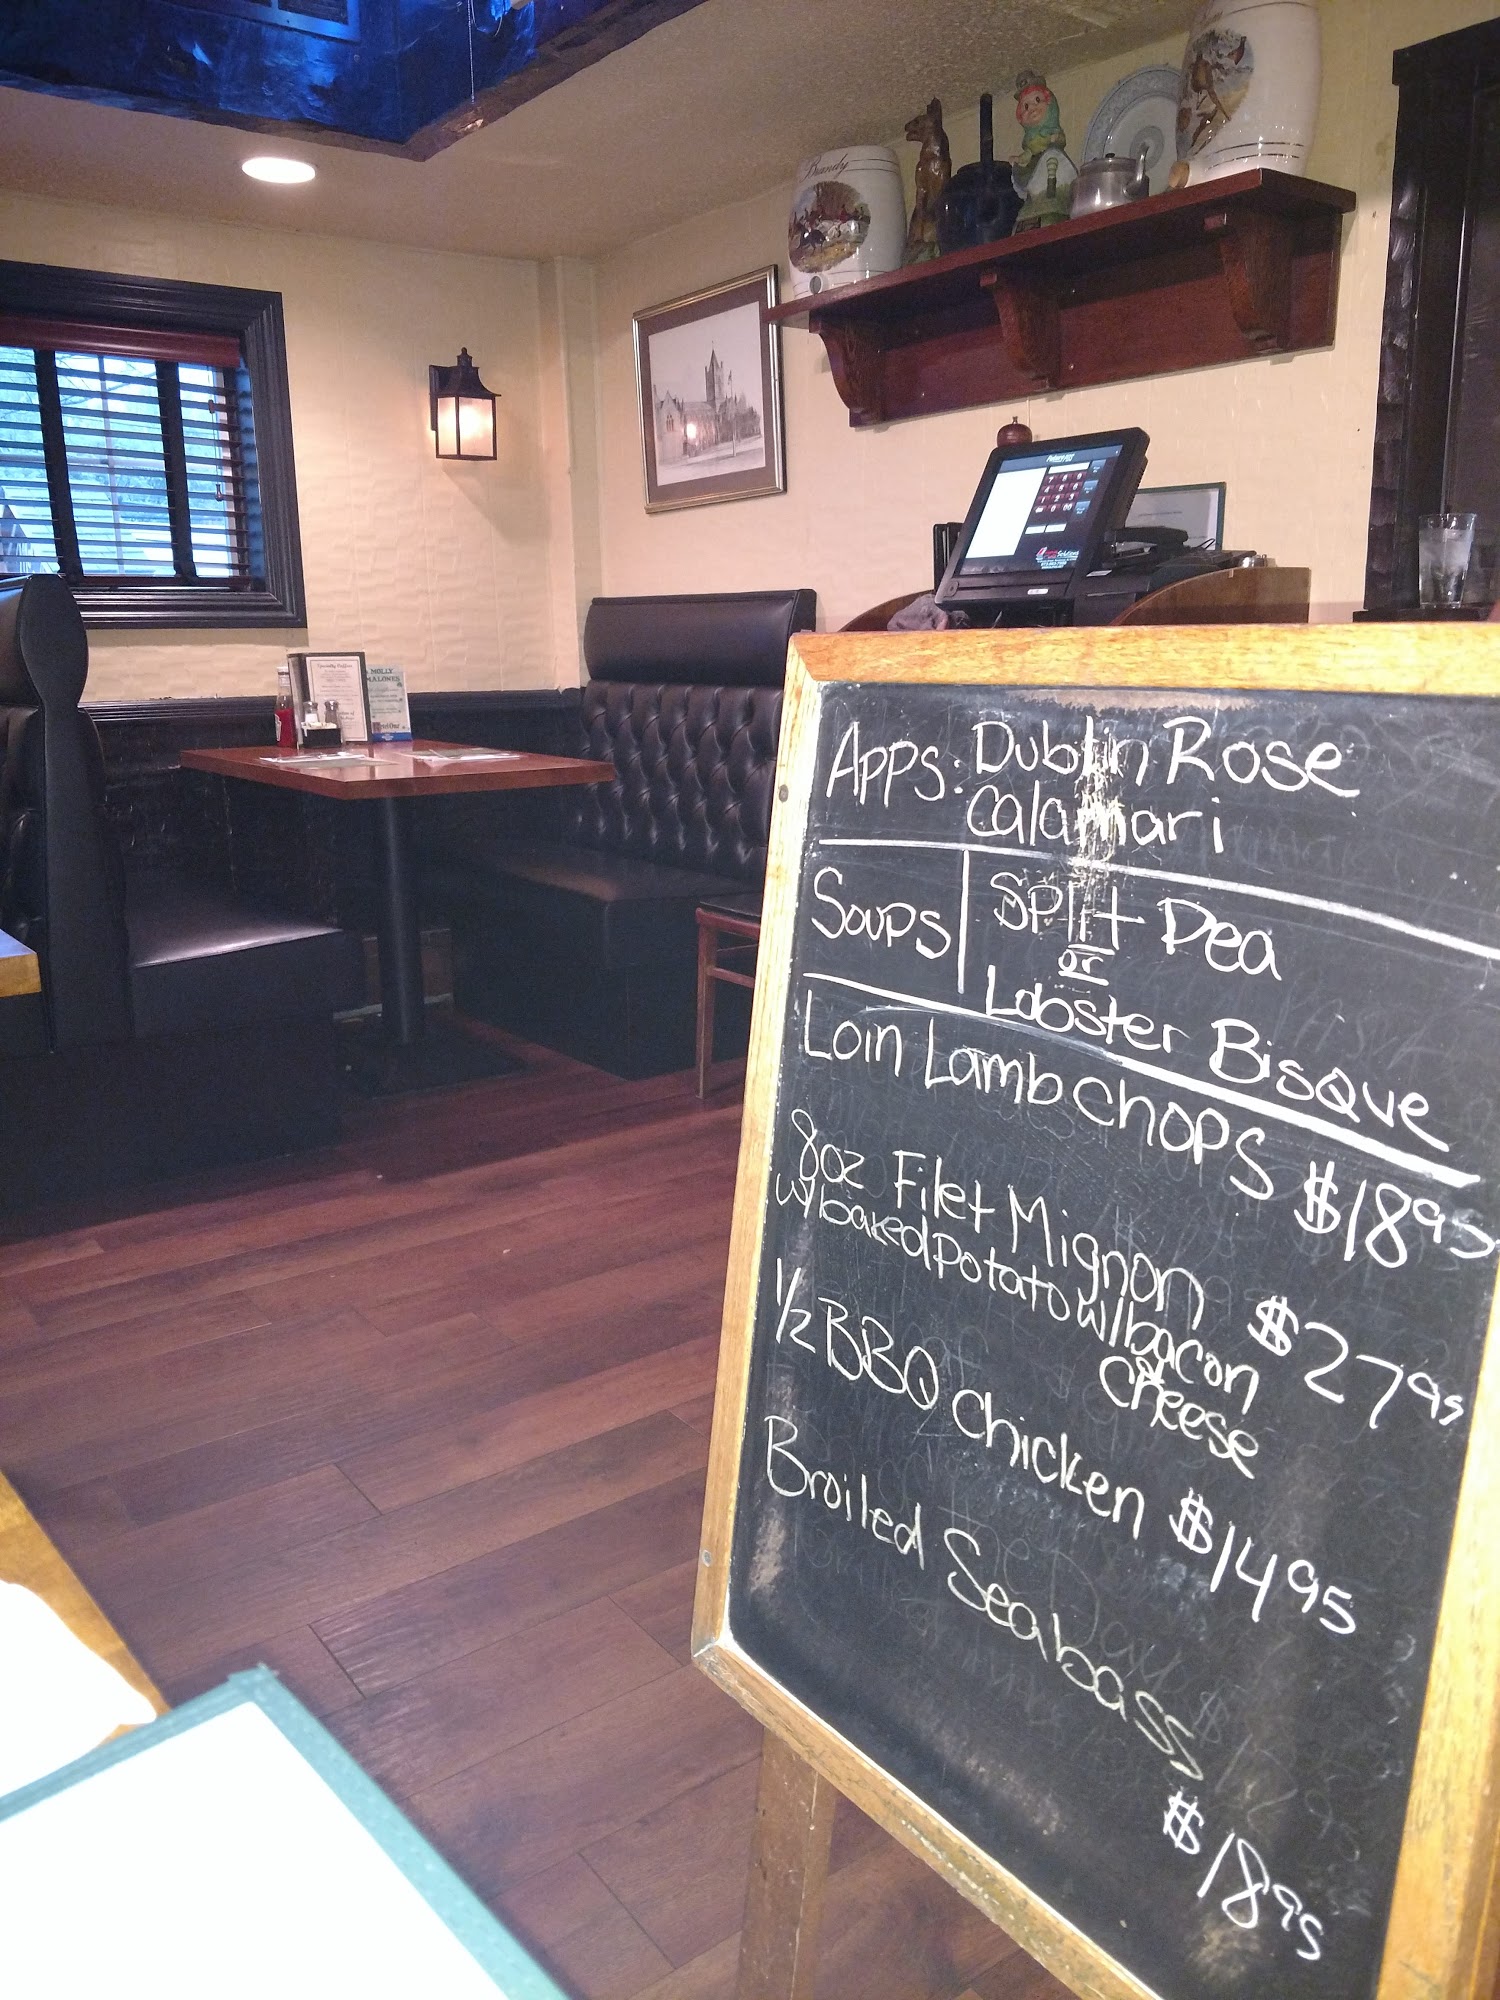 Brandy
MOLLY
MALONES
Apps: Dublin Rose
Calamari
Soups
Split Pea
or
Lobster Bisque
Loin Lamb Chops $18 95
8oz Filet Mignon $27 95
w/baked potato w/bacon
& cheese
1/2 BBQ Chicken $14 95
Broiled Seabass
$18 95